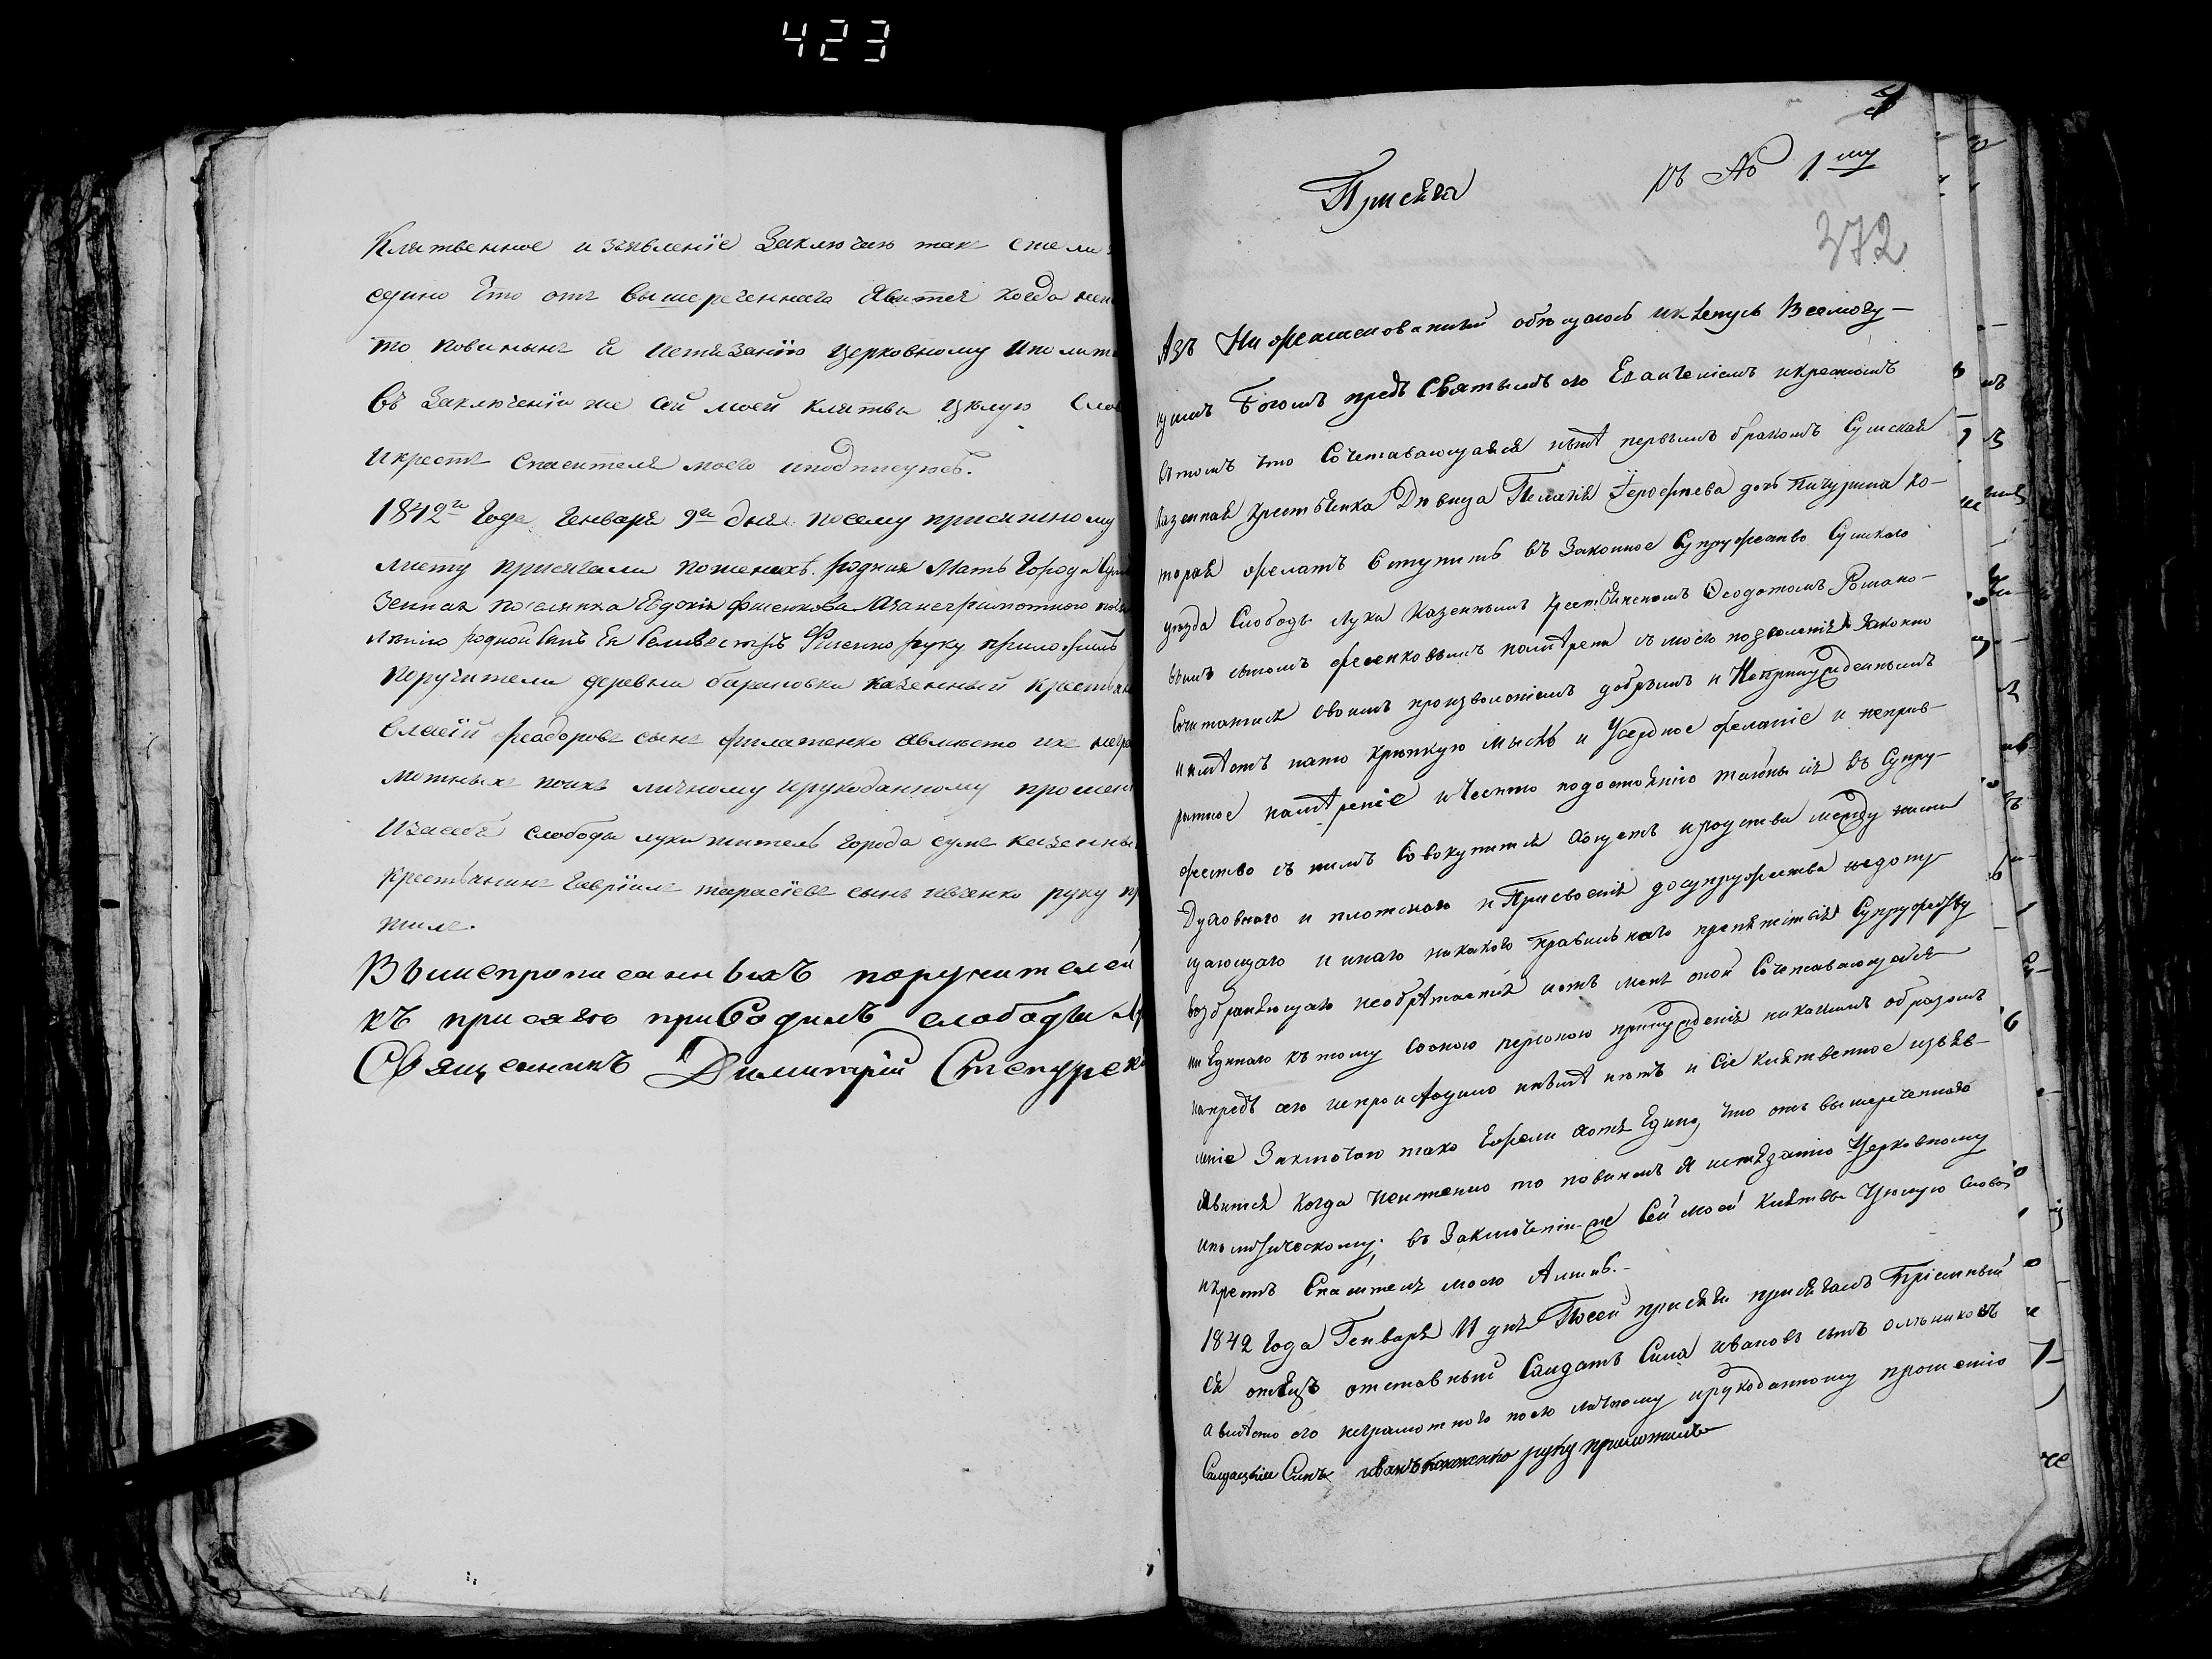 423
Клятвенное изъявленіе Заключаю тако ежели
едино Что отъ вышереченнаго Явится когда
то повиненъ Я Истязанію церковному
въ Заключеніи же сей моей клятвы цѣлую Слов
и крестъ Спасителя моего и подписуюсь.
1842го Года Генваря 9го дня по сему присяжному
листу присягали по женихѣ родная Мать Города
поселянка Евдокія Фисенкова
родной сынъ Ея Селивестръ Фисенко руку приложилъ
Поручители деревни барановки казенный крестьян
Власій феодоровъ сынъ филатенко а вмѣсто ихъ негра
мотныхъ по ихъ личному и рукоданному прошен
И за себя слободы луки житель города сумъ казенны
крестьянинъ Гавріилъ тарасіевъ сынъ ивченко руку пр
жилъ.
Вышепрописанныхъ поручителей
къ присягѣ приводилъ слободы Лу
Священникъ Димитрій
4
Присяга
къ № 1му
372
Азъ Нижеименованный обѣщаюсь и кленусь Всемогу-
щимъ Богомъ предъ Святымъ его Евангеліемъ и крестомъ
въ томъ что Сочетавающаяся нынѣ первымъ бракомъ Сумская
казенная крестьянка Дѣвица Пелагія Ерофѣева дочь Пичурина ко-
торая желаетъ вступить въ Законное Супружество Сумскаго
уезда Слободы Луки Казеннымъ крестьяниномъ Феодотомъ Романо-
вымъ сыномъ фесенковымъ намѣрена съ моего позволенія Законно
Сочитатися своимъ произволеніемъ добрымъ и Непринужденнымъ
и имѣетъ на то крѣпкую мысль и Усердное желаніе и неприв-
ратное намѣреніе и Чеснто по достоянію тайны сія въ Супру-
жество съ нимъ Совокупится А сущетъ и родства между ними
Духовнаго и плотскаго и Присвоенія до супружества не допу-
щающаго и инаго никакого правильнаго препятствія Супружеству
возбраняющаго не обрѣтается и отъ меня оной Сочетавающейся
ни Единаго къ тому Сооною персоною принужденія никакимъ образомъ
напредъ сего не произходило и нынѣ нѣтъ и Сіе клятвенное изъяв-
леніе Заключаю тако Ежели хотя Едино что отъ вышереченнаго
Явится когда Неистенно то повиненъ Я истязанію Церковному
и политическому; въ Заключеніи же Сей моей клятвы Цѣлую Слова
и крестъ Спасителя моего Аминь.-
1842 Года Генваря 11 дня По сей присяги присягалъ Пріемный
Ея отецъ отставный Салдатъ Сила ивановъ сынъ
а вмѣсто его неграмотнаго по его личному и рукоданному прошенію
Сынъ иванъ руку приложилъ